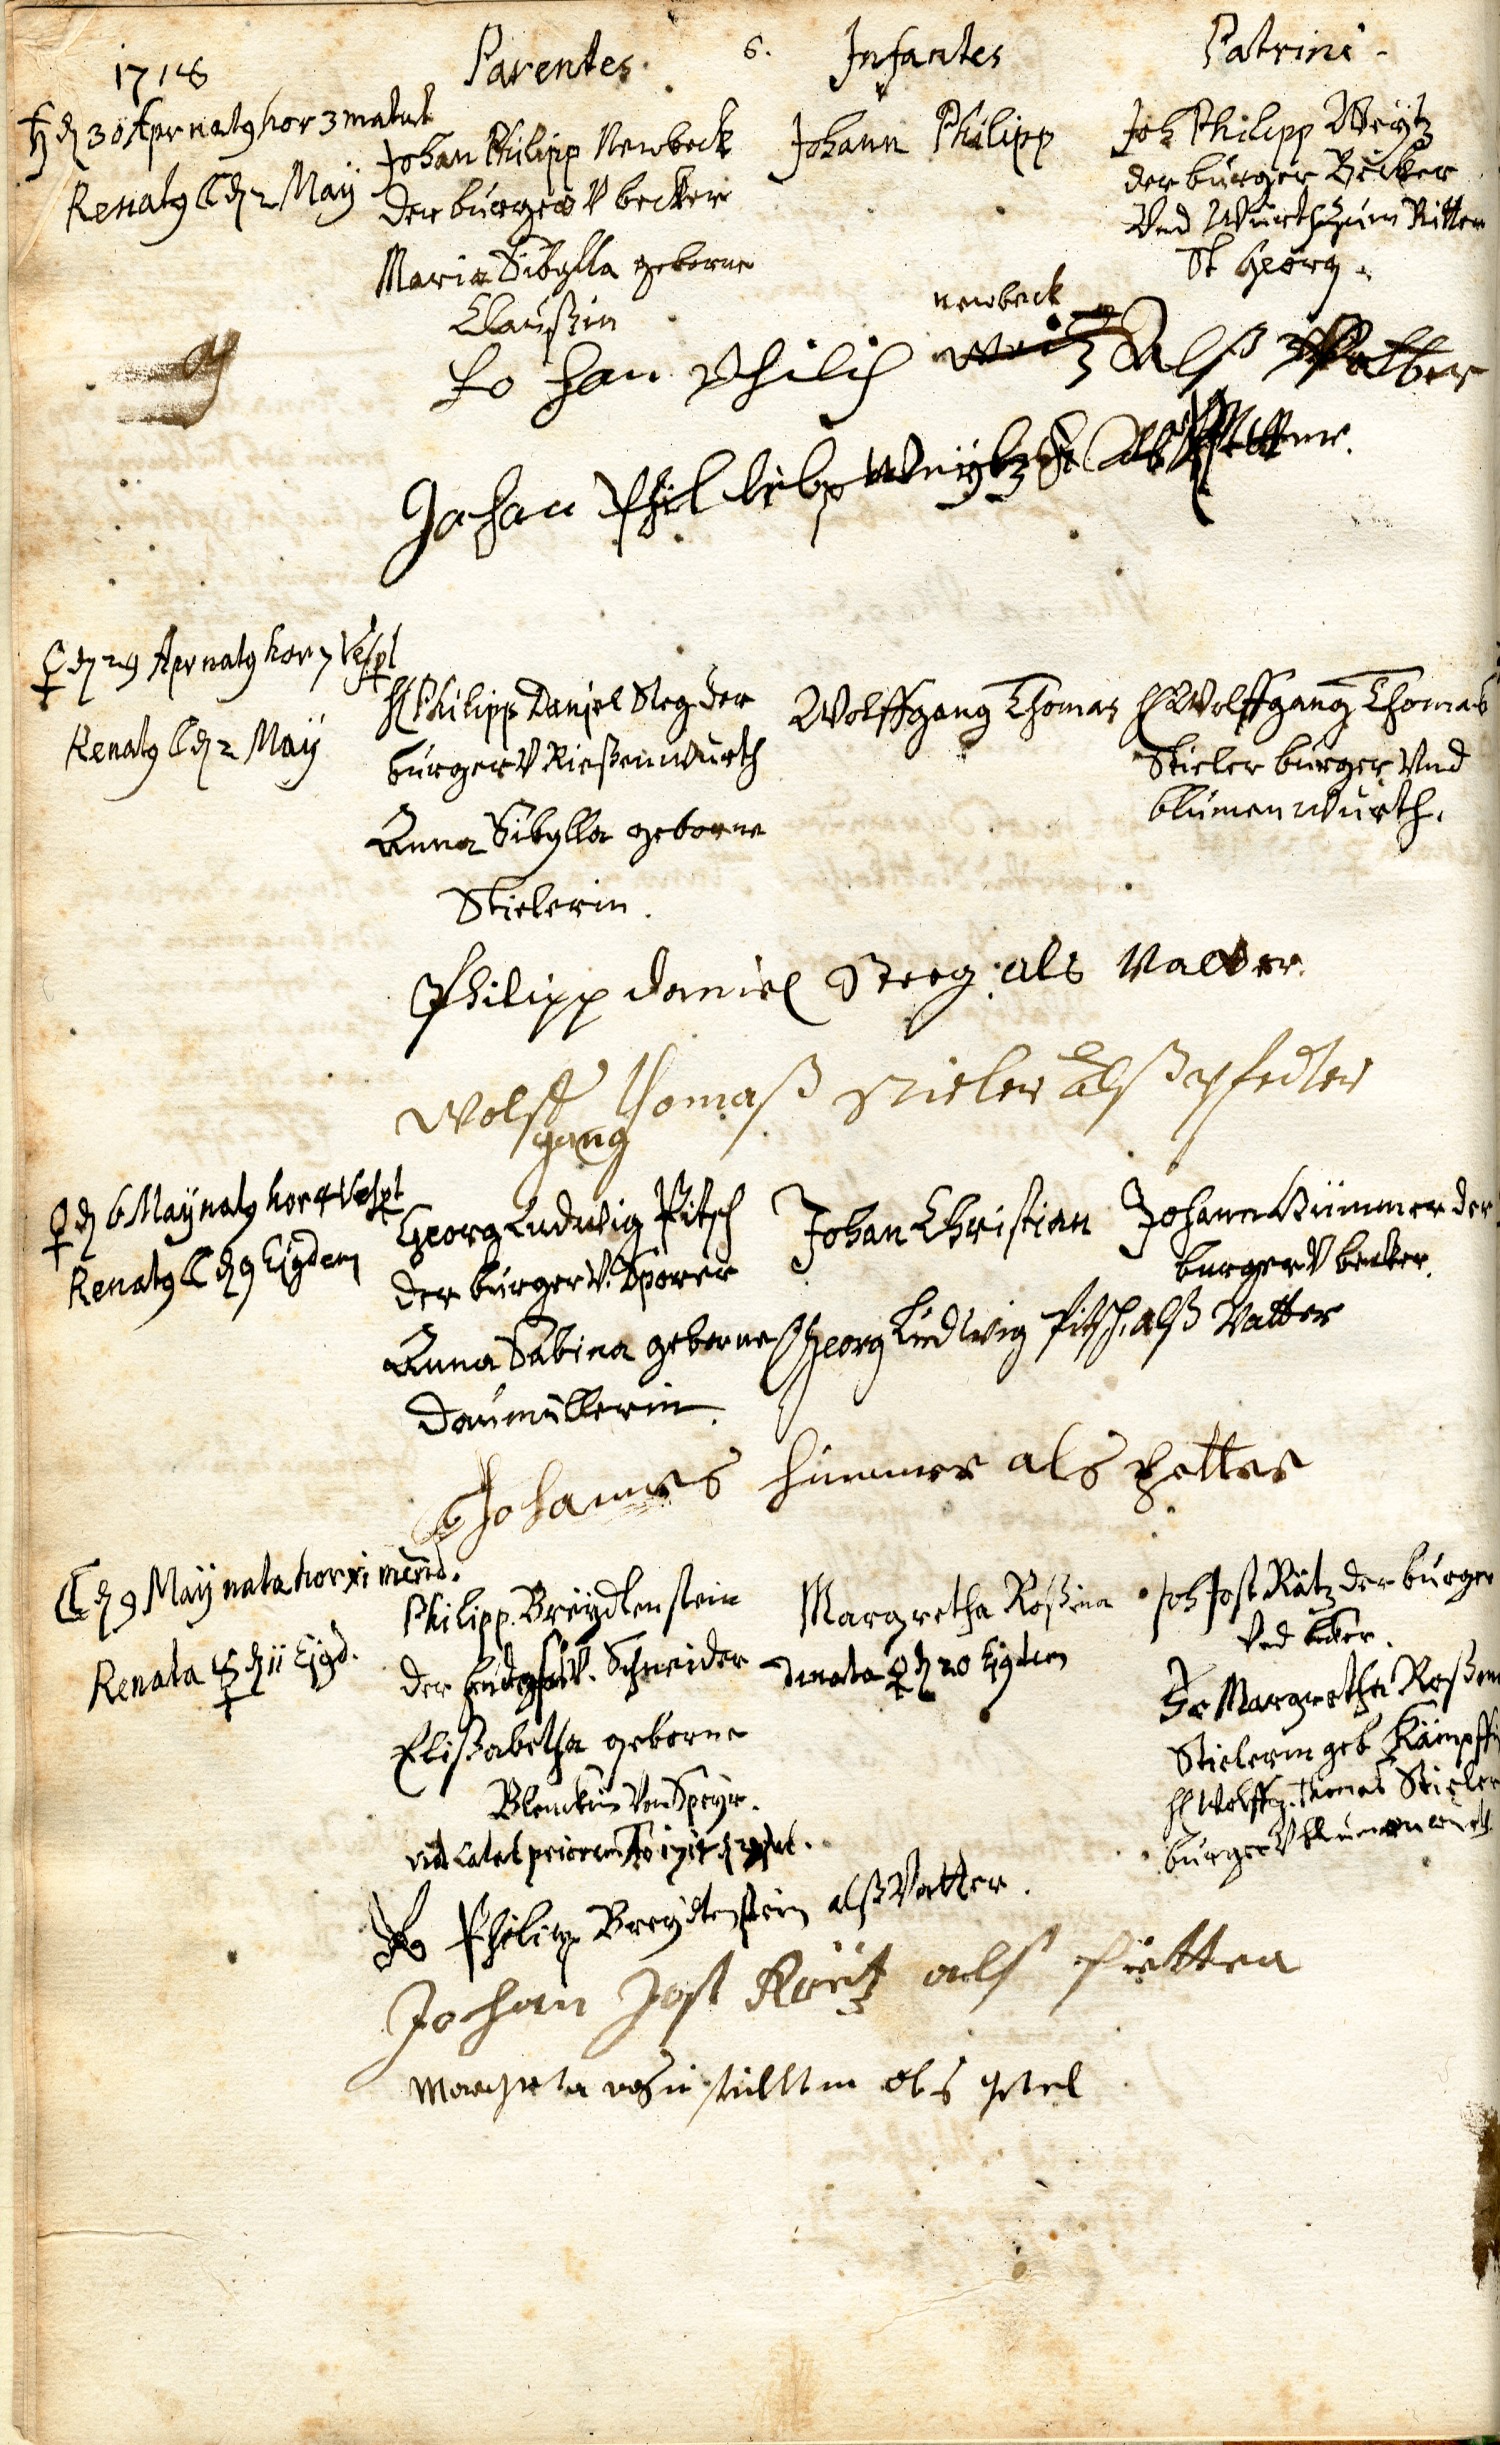 1718
Parentes.
6.
Infantes
Patrini
♄ d 30 Apr natg hor 3 matut
Renatg ☾ d 2 Maÿ
Johan Philipp Newbeck
der burger V becker
Maria Sibylla geborne
Claußin
Johann Philipp
Joh Philipp Weytz
der burger Becker
Vnd Würth zum Ritter
St Georg.
newbeck
Johan Philip Alß Vatter
Johan Phillibp Weytz Als Petter.
♀ d 29 Apr natg hor 7 Vespt
Renatg ☾ d 2 Maÿ
H Philipp Daniel Steg der
burger V Rießenwürth
Anna Sibylla geborne
Stielerin.
Wolffgang Thomas
H Wolffgang Thomas
Stieler burger Vnd
blumenwürth.
Philipp daniel Steeg als Vatter.
Wolff Thomaß Stieler alß pfetter
gang
♀ d 6 Maÿ natg hor 4 Vespt
Renatg ☾ d 9 Ejgdem
Georg Ludwig Pitsch
der burger V. Sporer
Anna Sabina geborne
Daumüllerin.
Johan Christian
Johann Kümmer der
burger V becker.
Georg Ludwig Pitsch alß Vatter
Johannes Kümmer als petter
☾ d 9 Maÿ nata hor xi merid.
Renata ☿ d 11 Ejgd.
Philipp Breÿdtenstein
der V. Schneider
Elißabetha geborne
von Speyr.
Margretha Roßina
denata ♀ d 20 Ejgdem
Joh Jost Rätz der burger
Vnd becker.
Fr Margretha Roßin
Stielerin geb Kämpff
H Wolffg. Thomas Stieler
burger V blumenwürth
Philipp Breydtenstein alß Vatter.
Johan Jost Rätz alß Petter
Margreta als